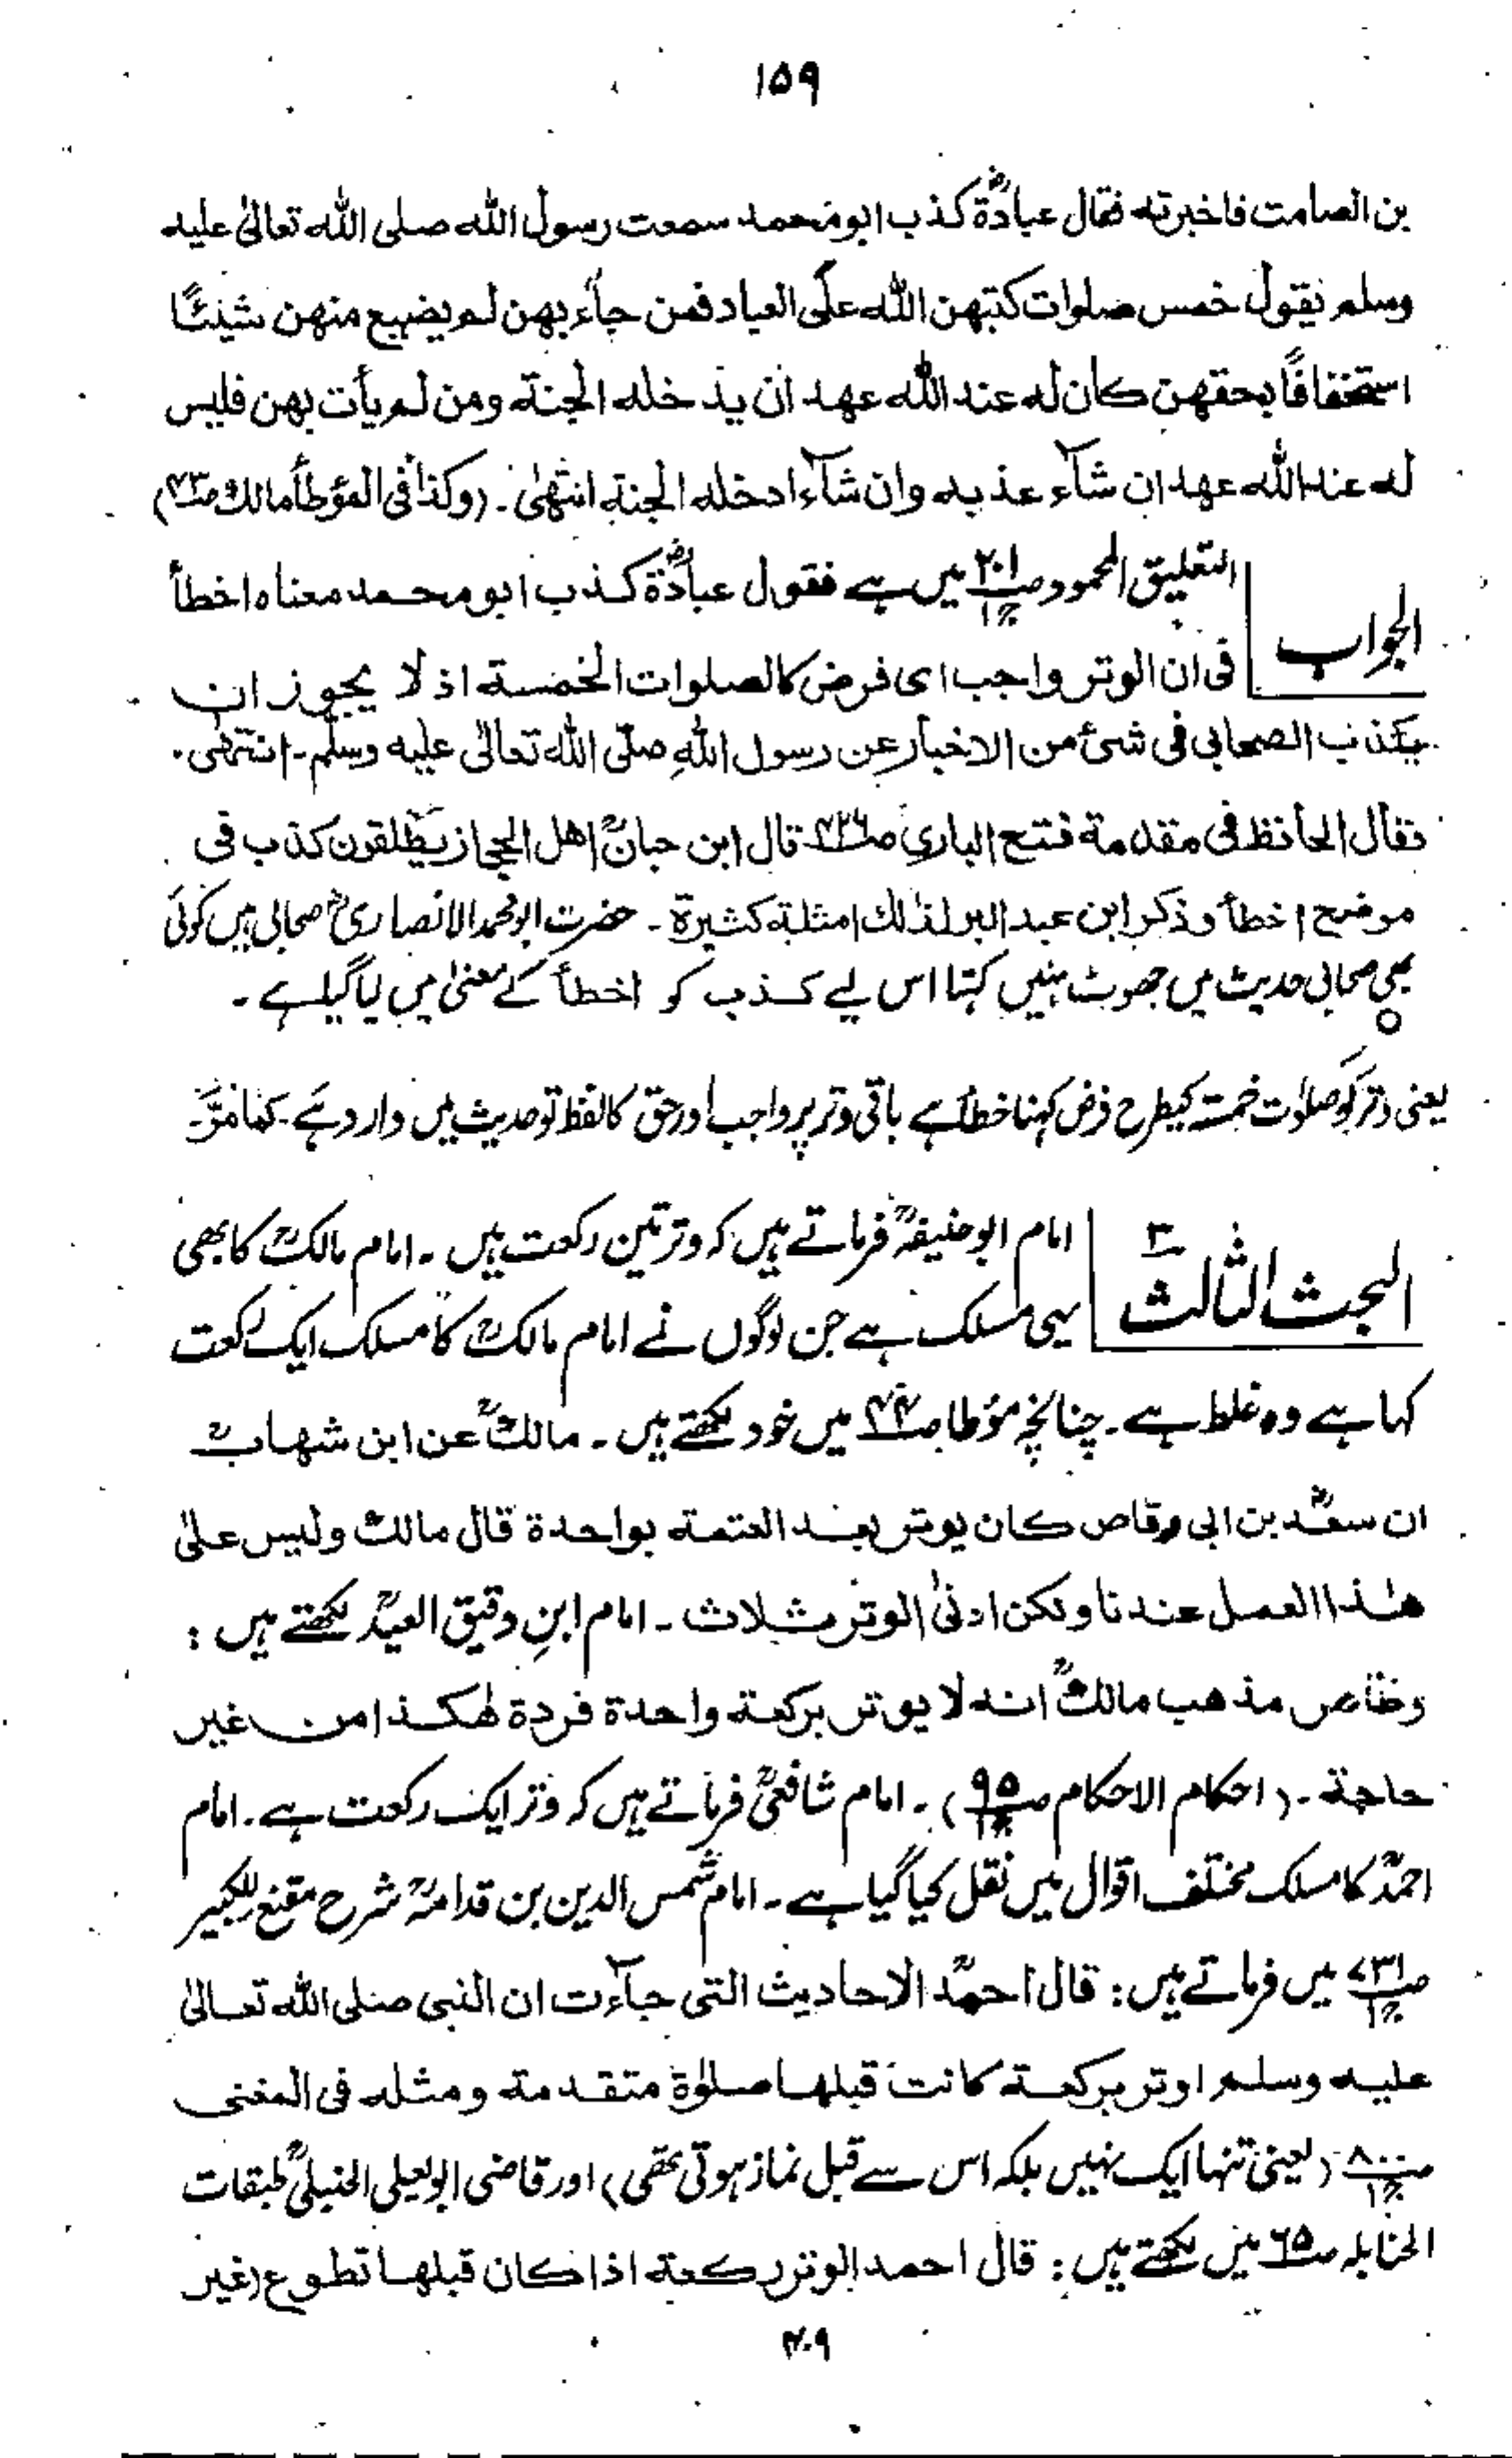 ۱۵۹
بن الصامت فاخبرته فقال عبادةؓ كذب ابو محمد سمعت رسول الله صلى الله تعالىٰ عليه
وسلم يقول خمس صلوات كتبهن الله على العباد فمن جاء بهن لم يضيع منهن شيئًا
استخفافًا بحقهن كان له عند الله عهد ان يدخله الجنة ومن لم يأت بهن فليس
له عند الله عهد ان شآء عذبه وان شآء ادخله الجنة انتهىٰ۔ (وكذا فى المؤطأ مالكؒ
الجواب
التعلیق المحمود ص۲۰۱ ج۱ میں ہے فقول عبادةؓ كذب ابو محمد معناه اخطأ
فى ان الوتر واجب اى فرض كالصلوات الخمسة اذ لا يجوز ان
يكذب الصحابى فى شئ من الاخبار عن رسول اللهِ صلّى الله تعالىٰ عليه وسلّم۔ انتهىٰ۔
فقال الحافظ فى مقدمة فتح البارى قال ابن حبانؒ اهل الحجاز يطلقون كذب فى
موضع اخطأ وذكر ابن عبد البر لذالك امثلة كثيرة۔ حضرت ابو محمد الانصاریؓ صحابی ہیں کوئی
بھی صحابی حدیث میں جھوٹ نہیں کہتا اس لیے کذب کو اخطأ کے معنیٰ میں لیا گیا ہے۔
یعنی وتر کو صلوٰت خمسۃ کیطرح فرض کہنا خطأ ہے باقی وتر پر واجب اور حق کا لفظ تو حدیث میں وارد ہے۔ کما مرّ۔
البحث الثالث ۳
امام ابو حنیفہؒ فرماتے ہیں کہ وتر تین رکعت ہیں۔ امام مالکؒ کا بھی
یہی مسلک ہے جن لوگوں نے امام مالکؒ کا مسلک ایک رکعت
کہا ہے وہ غلط ہے۔ چنانچہ مؤطا ص۴۴ میں خود لکھتے ہیں۔ مالكؒ عن ابن شهابؒ
ان سعدؓ بن ابى وقاص كان يوتر بعد العتمة بواحدة قال مالكؒ وليس علىٰ
هٰذا العمل عندنا ولكن ادنىٰ الوتر ثلاث۔ امام ابنِ دقیق العیدؒ لکھتے ہیں:
وخاص مذهب مالكؒ انه لا يوتر بركعة واحدة فردة هٰكذا من غير
حاجة۔ (احکام الاحکام ص۹۵ ج۱)۔ امام شافعیؒ فرماتے ہیں کہ وتر ایک رکعت ہے۔ امام
احمدؒ کا مسلک مختلف اقوال میں نقل کیا گیا ہے۔ امام شمس الدین بن قدامہؒ شرح مقنع للکبیر
ص۷۳۱ ج۱ میں فرماتے ہیں: قال احمدؒ الاحاديث التى جآءت ان النبى صلى الله تعالىٰ
عليه وسلم اوتر بركعة كانت قبلها صلوٰة متقدمة ومثله فى المغنى
ص۸۰۰ ج۱ (یعنی تنہا ایک نہیں بلکہ اس سے قبل نماز ہوتی تھی) اور قاضی ابو یعلی الحنبلیؒ طبقات
الحنابلہ ص۶۵ میں لکھتے ہیں: قال احمد الوتر ركعة اذا كان قبلها تطوع (غير
۲۰۹